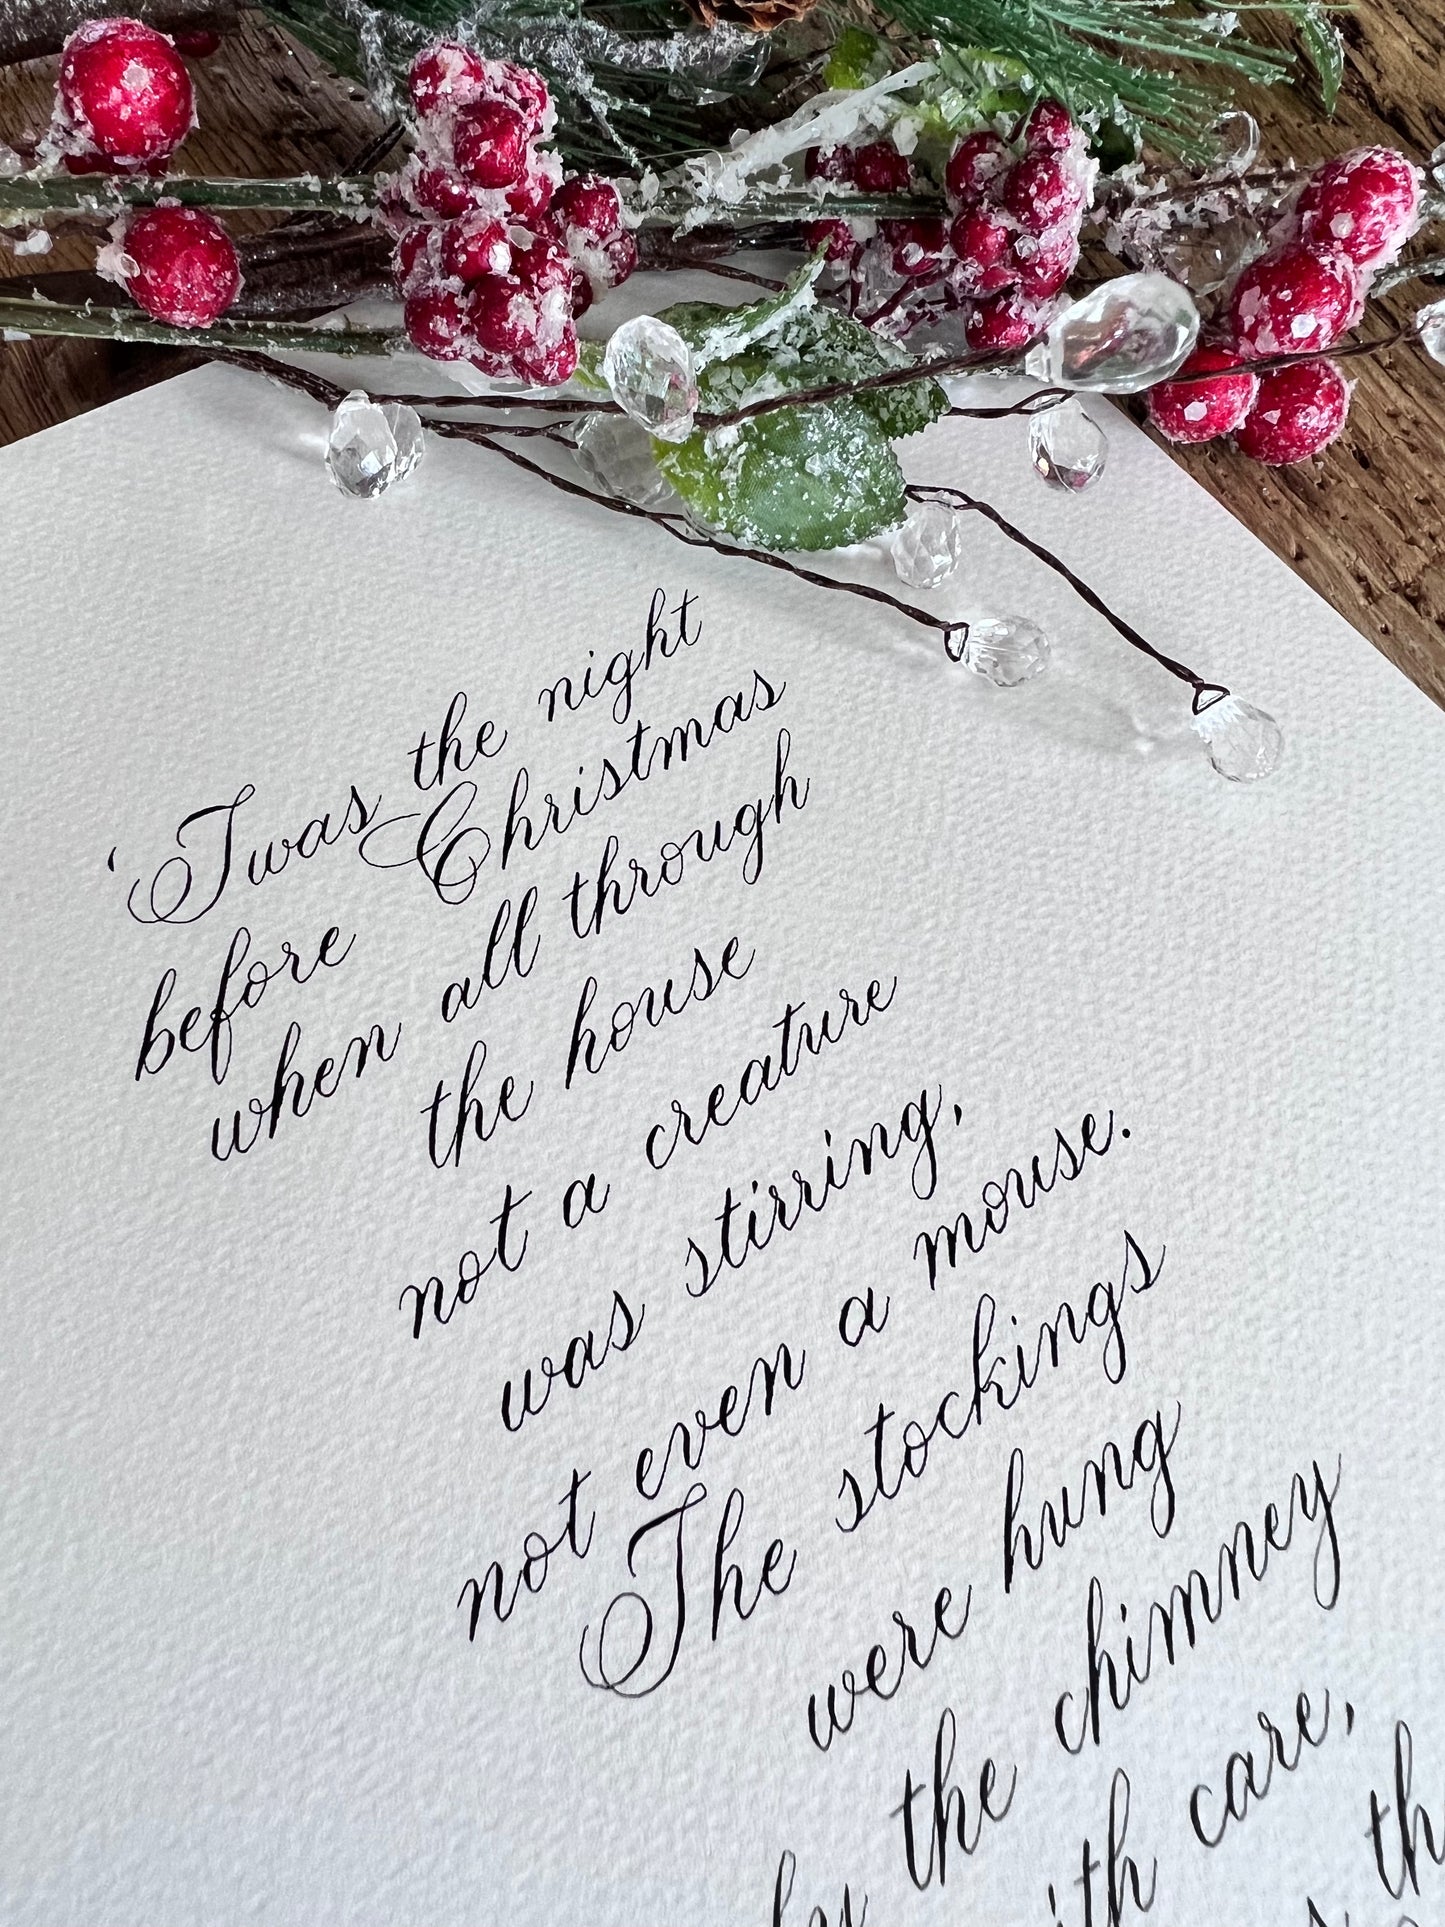 'Twas the night
before Christmas
when all through
the house
not a creature
was stirring,
not even a mouse.
The stockings
were hung
by the chimney
with care,